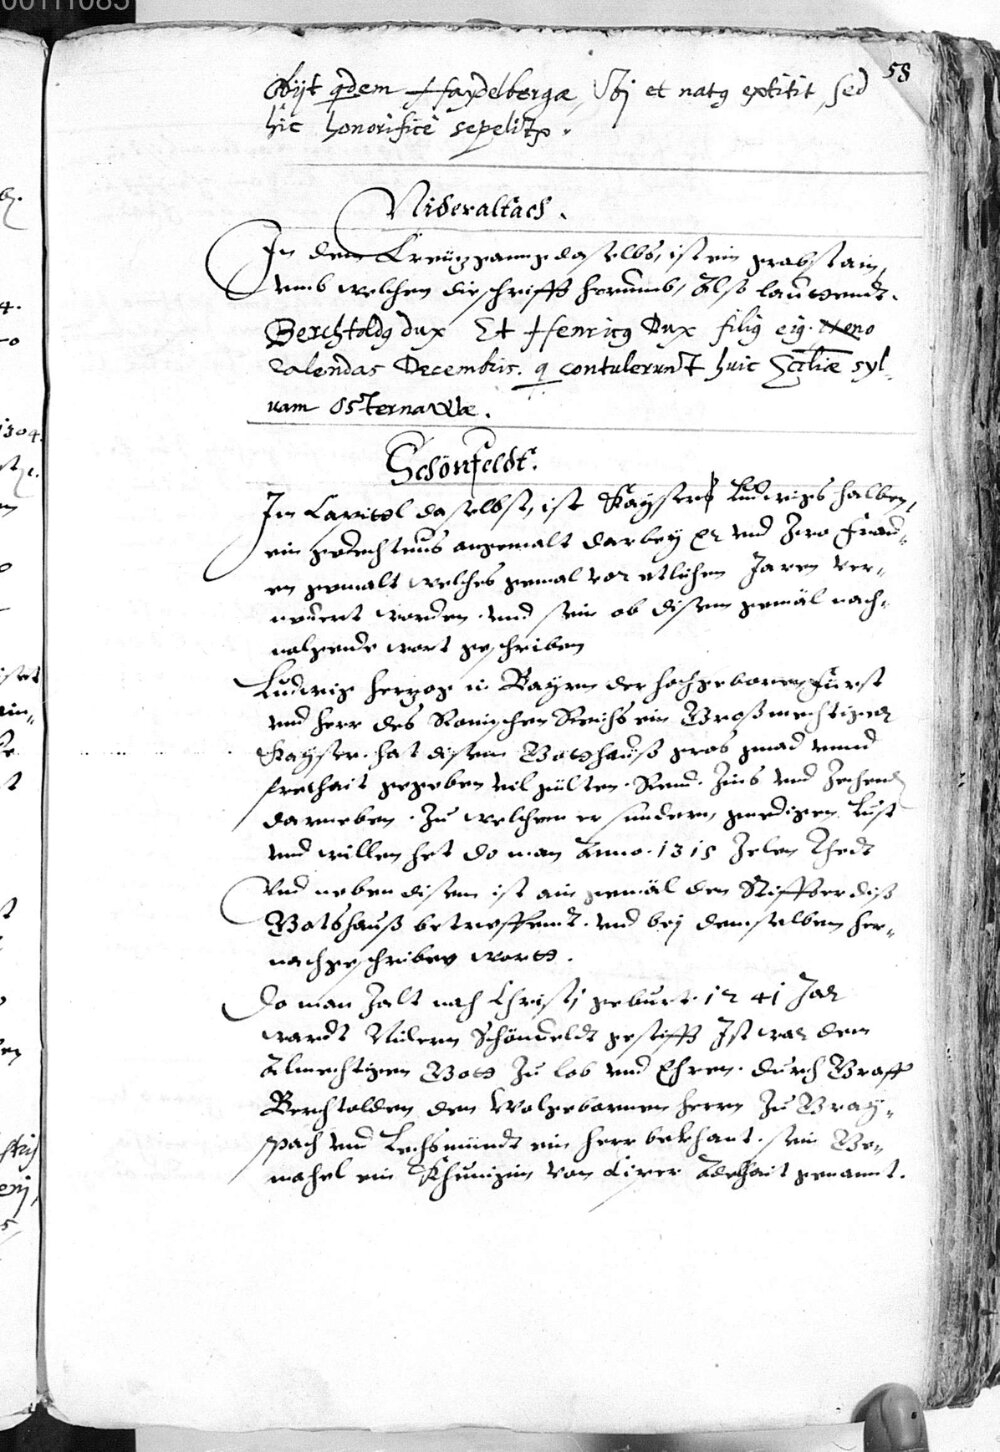 58
Obijt qdem Haydelbergæ, Vbj et natg extitit, sed
hic honorificè sepelitr.
Nideraltach.
In dem Kreützgang daselbs, ist ein grabstain,
vmb welchen die schrifft herumb, Also lauttendt.
Berchtoldg dux Et Henricg Dux filig eig. Nono
Calendas Decembris. q contulerunt huic Ecclîæ syl-
uam Osternawæ.
Schönfeldt.
Im Capittel daselbst, ist Kaysers Ludwigs halben,
ein gedechtnus angemalt darbey Er vnd Zwo Frau-
en gemalt welches gemäl vor etlichen Jaren ver-
neuert worden. vnd sein ob disem gemäl nach-
uolgende wort geschriben
Ludwig hertzog in Bayrn der hochgeboren Fürst
vnd herr des Römischen Reichs ein Großmechtiger
Kayser. hat disem Gottshauß gros gnad vnnd
freihait gegeben vil gülten. Rend. Zins vnd Zehend
darneben. Zu welchem er sundern gnedigen Lust
vnd willen het do man Anno. 1315 Zelen Thedt
Vnd neben disem ist ain gemäl den Stiffter diß
Gotshauß betreffendt. vnd bej demselben her-
nachgeschriben wortt.
Do man Zalt nach Christj geburt. 1241 Jar
wardt Schönueldt gestifft Ist war dem
Almechtigen Gott Zu lob vnd Ehren. durch Graff
Berchtolden den Wolgebornen herrn Zu Gray-
spach vnd Lechsmündt ein herr bekhant. sein Ge-
mahel ein Khünigin von Adelhait genannt.